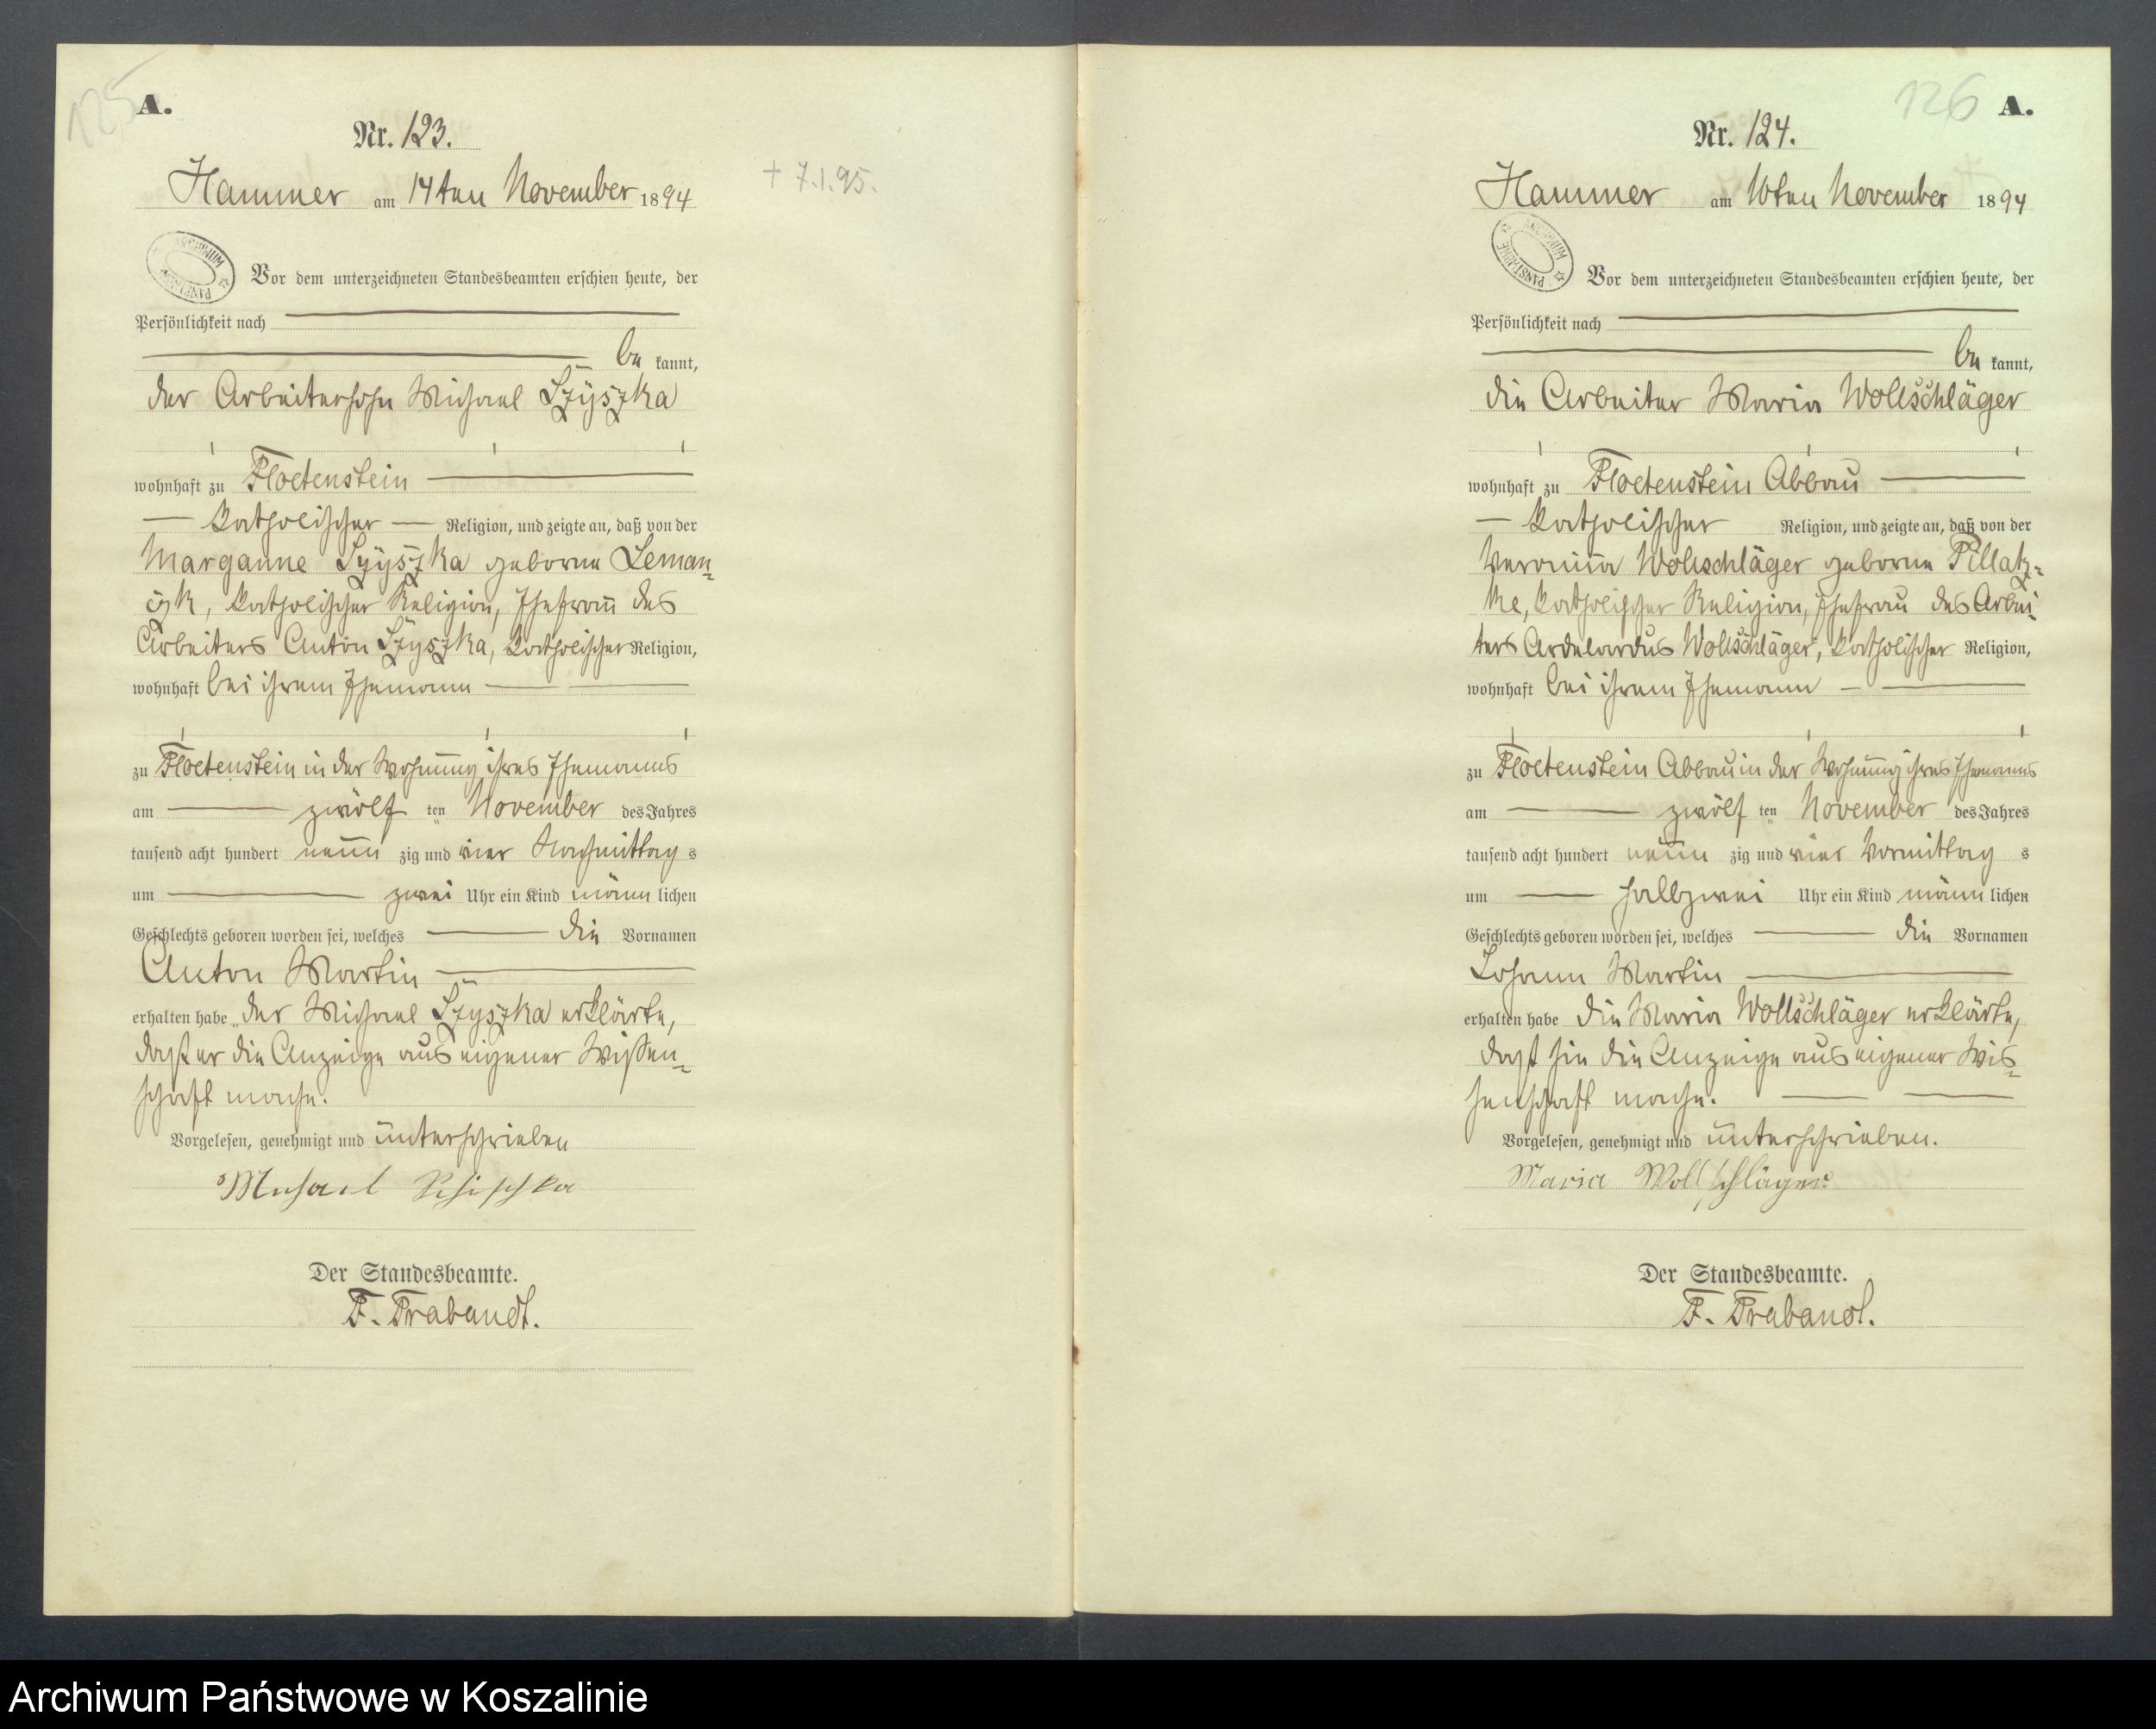 125
A.
Nr. 123.
Hammer am 14ten November 1894
+ 7.1.95.
ARCHIWUM PAŃSTWOWE
Vor dem unterzeichneten Standesbeamten erschien heute, der
Persönlichkeit nach
be kannt,
der Arbeitersohn Michael Szyszka
wohnhaft zu Floetenstein
katholischer Religion, und zeigte an, daß von der
Marganne Szyszka geborne Leman-
czyk, katholischer Religion, Ehefrau des
Arbeiters Anton Szyszka, katholischer Religion,
wohnhaft bei ihrem Ehemann
zu Floetenstein in der Wohnung ihres Ehemanns
am zwölf ten November des Jahres
tausend acht hundert neun zig und vier Nachmittag s
um zwei Uhr ein Kind männ lichen
Geschlechts geboren worden sei, welches die Vornamen
Anton Martin
erhalten habe der Michael Szyszka erklärte,
daß er die Anzeige aus eigener Wissen-
schaft mache.
Vorgelesen, genehmigt und unterschrieben
Michael Schischka
Der Standesbeamte.
F. Trabandt.
126
A.
Nr. 124.
Hammer am November 1894
ARCHIWUM PAŃSTWOWE
Vor dem unterzeichneten Standesbeamten erschien heute, der
Persönlichkeit nach
be kannt,
die Arbeiter Maria Wollschläger
wohnhaft zu Floetenstein Abbau
katholischer Religion, und zeigte an, daß von der
Veronika Wollschläger geborne Pillatz-
ke, katholischer Religion, Ehefrau des Arbei-
ters Wollschläger, katholischer Religion,
wohnhaft bei ihrem Ehemann
zu Floetenstein Abbau in der Wohnung ihres Ehemanns
am zwölf ten November des Jahres
tausend acht hundert neun zig und vier Vormittag s
um halbzwei Uhr ein Kind männ lichen
Geschlechts geboren worden sei, welches die Vornamen
Johann Martin
erhalten habe die Maria Wollschläger erklärte,
daß sie die Anzeige aus eigener Wis-
senschaft mache.
Vorgelesen, genehmigt und unterschrieben.
Maria Wollschläger
Der Standesbeamte.
F. Trabandt.
Archiwum Państwowe w Koszalinie